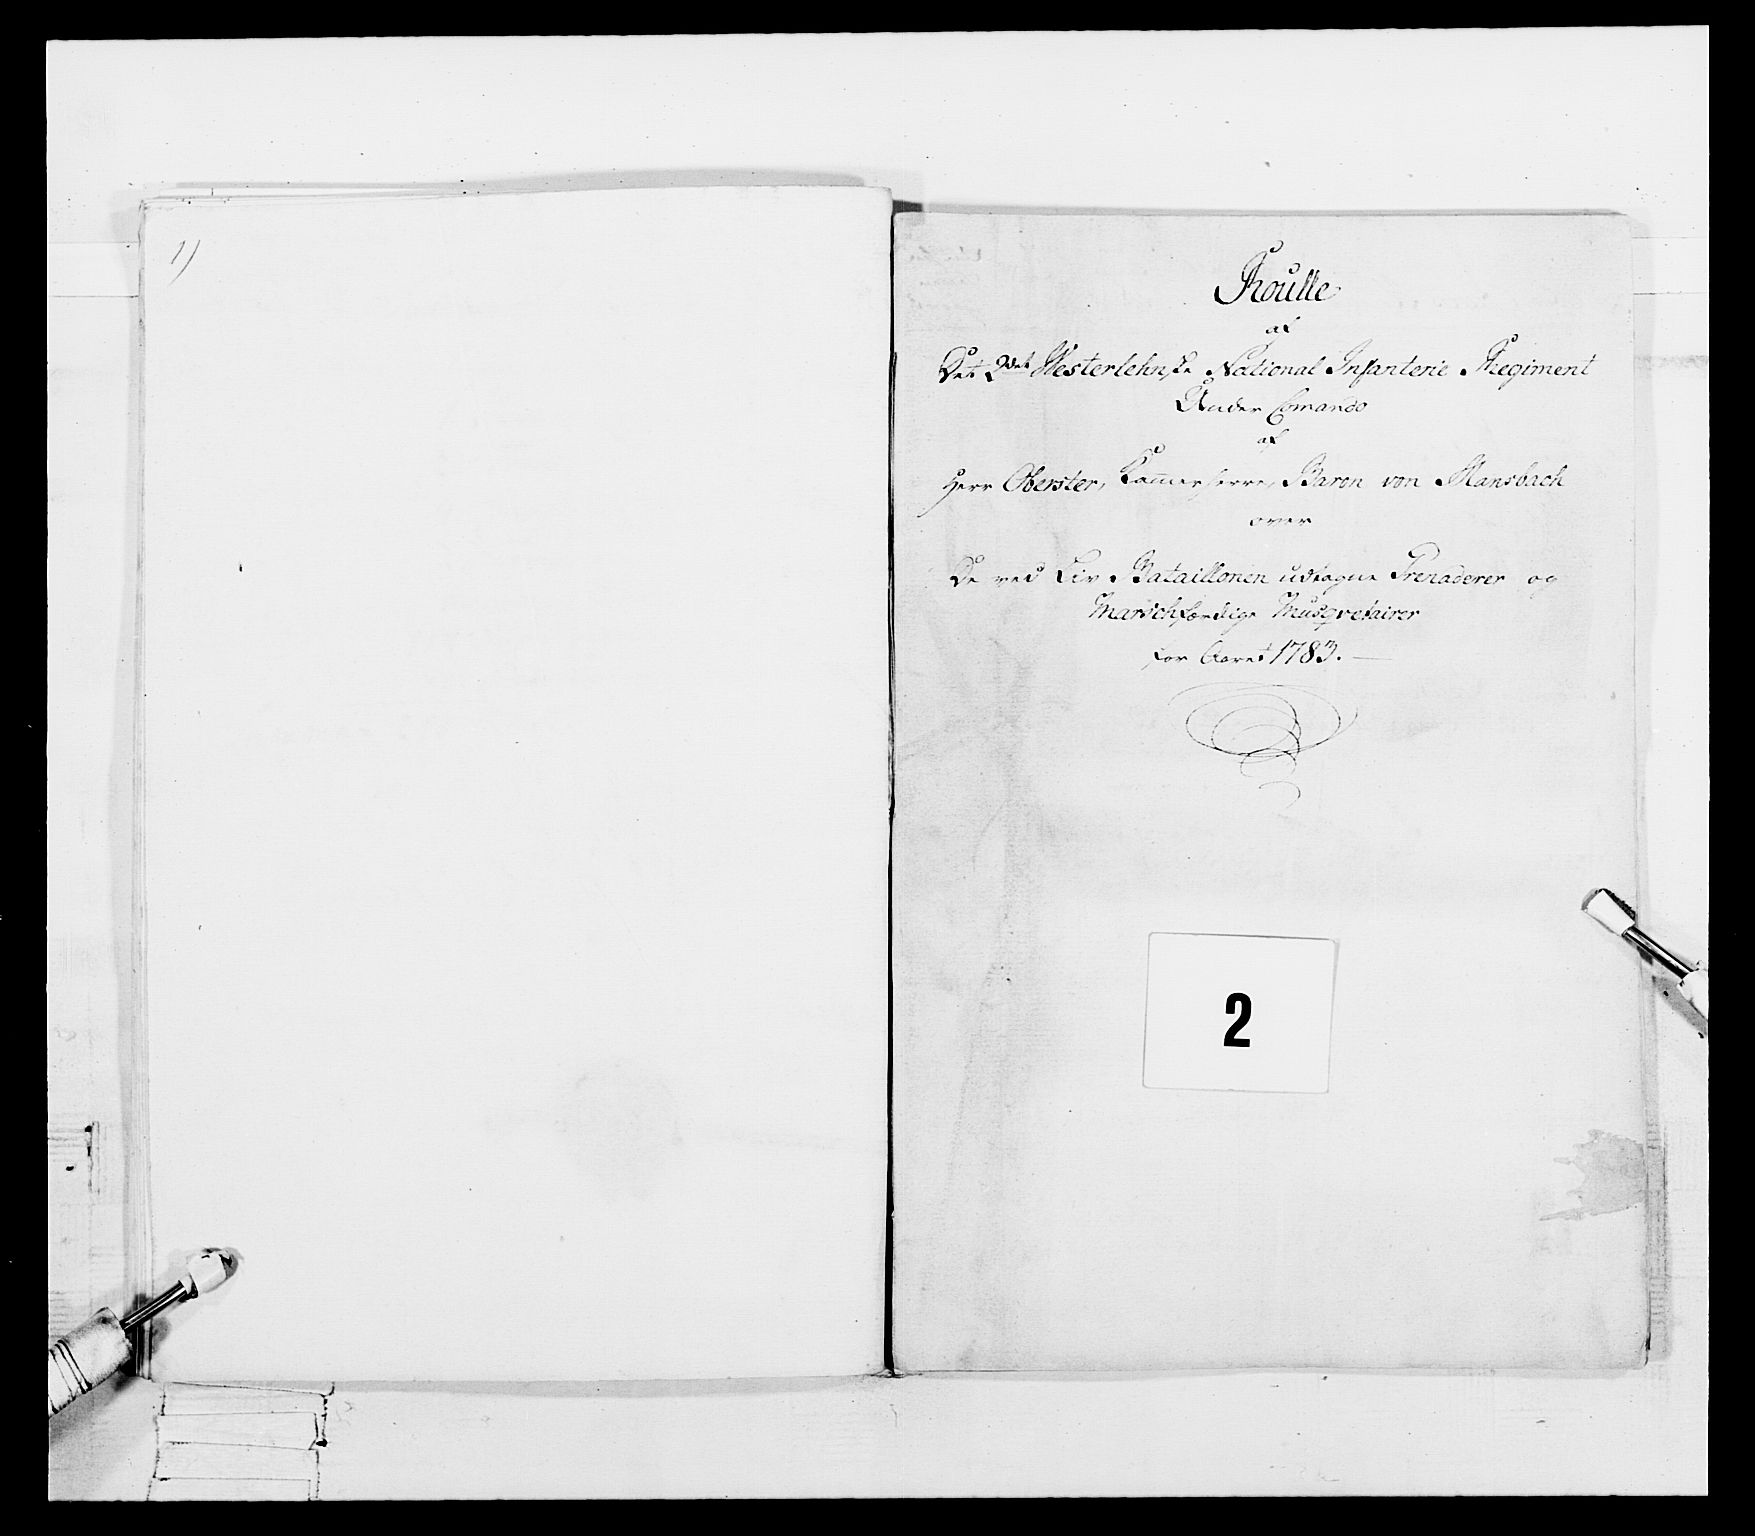 1)
Roulle
af
Det 2det Westerlehnske National Infanterie Regiment
Under Comando
af
Herr Oberster, Kammerherre, Baron von Mansbach
over
De ved Liv Bataillonen udtagne Grenaderer og
Marschfærdige Musqvetairer
for Aaret 1783.
2